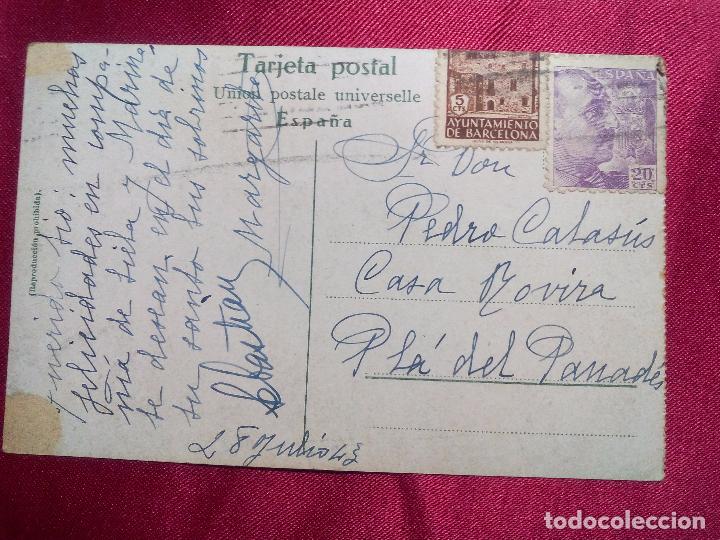 Tarjeta postal
Union postale universelle
España
5 CTS
AYUNTAMIENTO
DE BARCELONA
ESPAÑA
20
CTS
(Reproducción prohibida).
Querido tio: muchas
felicidades en compa-
ñia de tieta y Marina
te desean en el dia de
tu santo tus sobrinos
Sebastian y Margarina
28 Julio 43
Sr Don
Pedro Catasús
Casa Rovira
Plá del Panadés
todocoleccion
todocoleccion.net